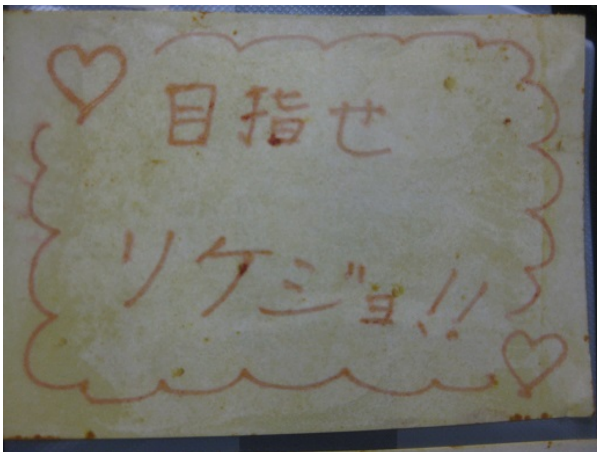 目指せ
リケジョ!!